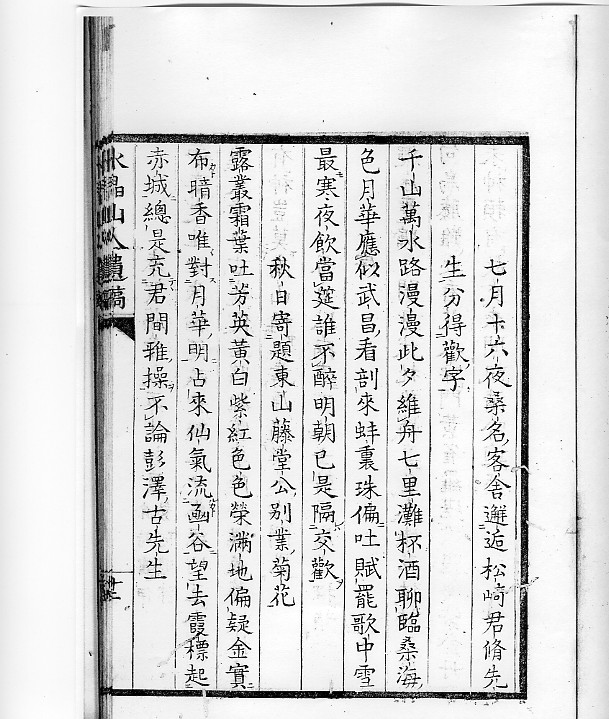 七月十六夜桑名客舍邂逅松崎君脩先
生分得歡字
千山萬水路漫漫此夕維舟七里灘杯酒聊臨桑海
色月華應似武昌看剖來蚌裏珠偏吐賦罷歌中雪
最寒夜飲當筵誰不醉明朝已是隔交歡
秋日寄題東山藤堂公別業菊花
露叢霜葉吐芳英黃白紫紅色色榮滿地偏疑金實
布暗香唯對月華明占來仙氣流函谷望去霞標起
赤城總是充君閒雅操不論彭澤古先生
水晶山人遺稿